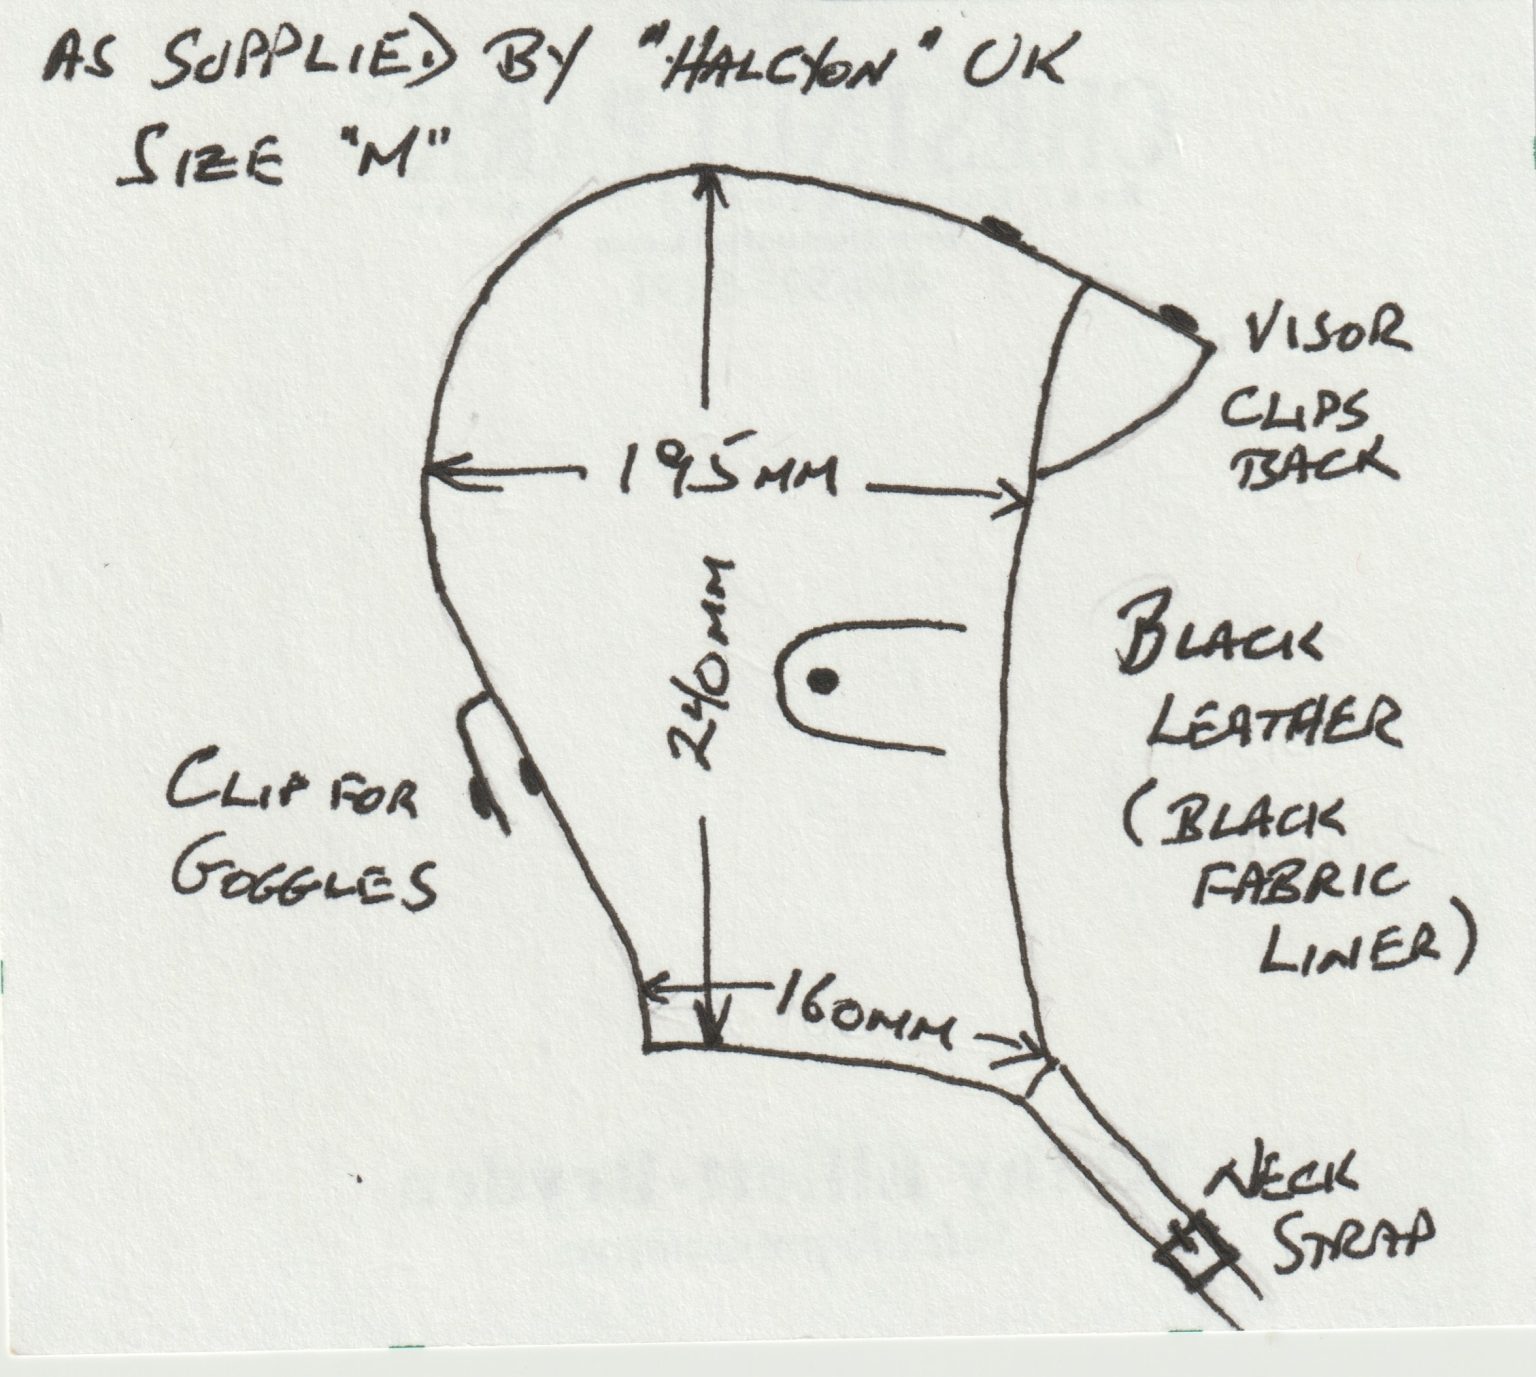 AS SUPPLIED BY "HALCYON" UK
SIZE "M"
VISOR
CLIPS
BACK
195MM
240MM
BLACK
LEATHER
(BLACK
FABRIC
LINER)
CLIP FOR
GOGGLES
160MM
NECK
STRAP